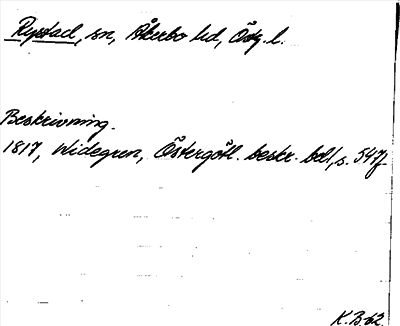 Rystad, sn, Åkerbo hd, Östg. l.
Beskrivning.
1817, Widegren, Östergötl. beskr. bd 1, s. 547f.
K.B. 62.